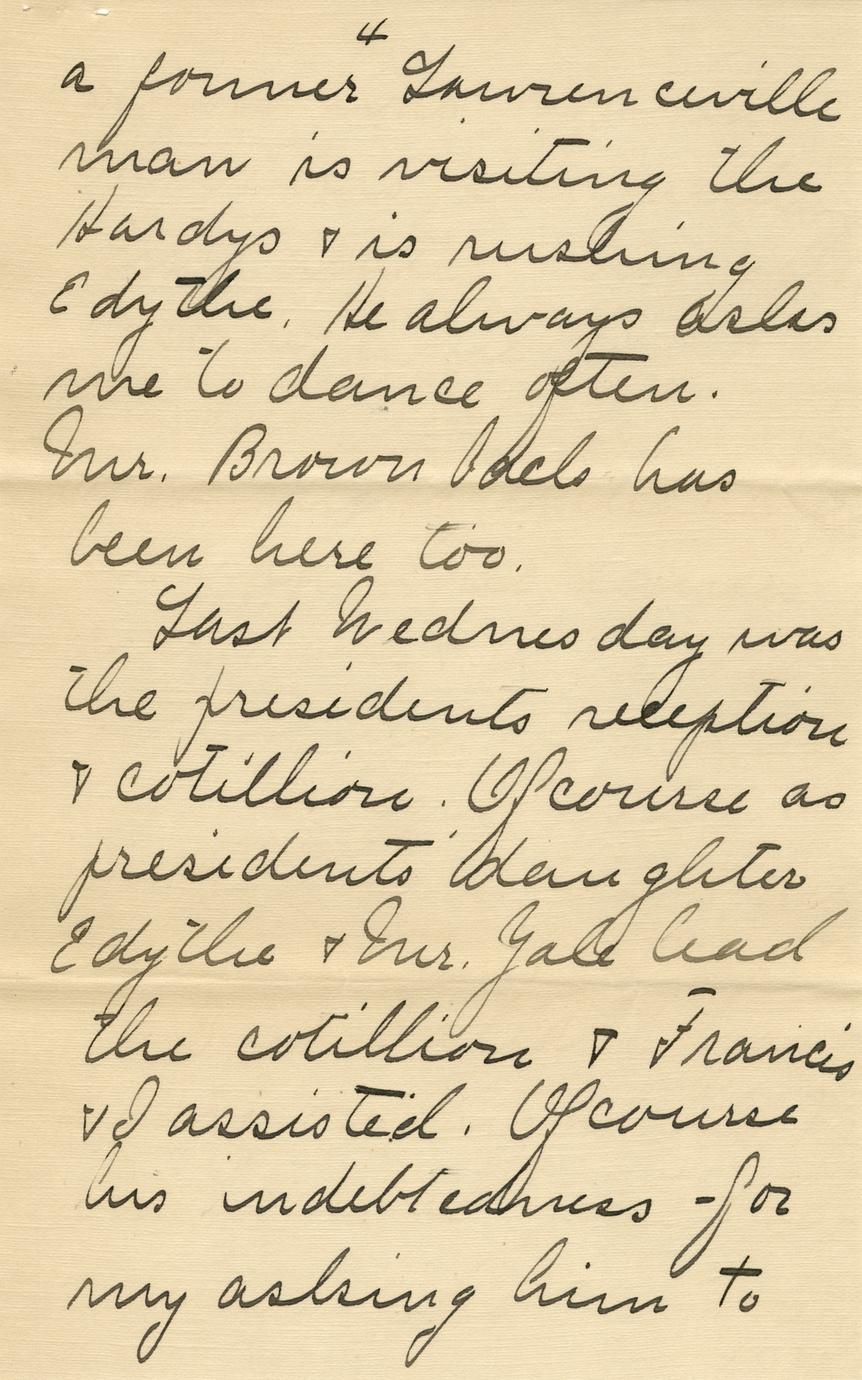 4
a former Lawrenceville
man is visiting the
Hardys & is rushing
Edythe. He always asks
me to dance often.
Mr. Brown has
been here too.
Last Wednesday was
the presidents reception
& cotillion. Of course as
presidents' daughter
Edythe & Mr. Yale lead
the cotillion & Francis
& I assisted. Of course
his indebtedness for
my asking him to